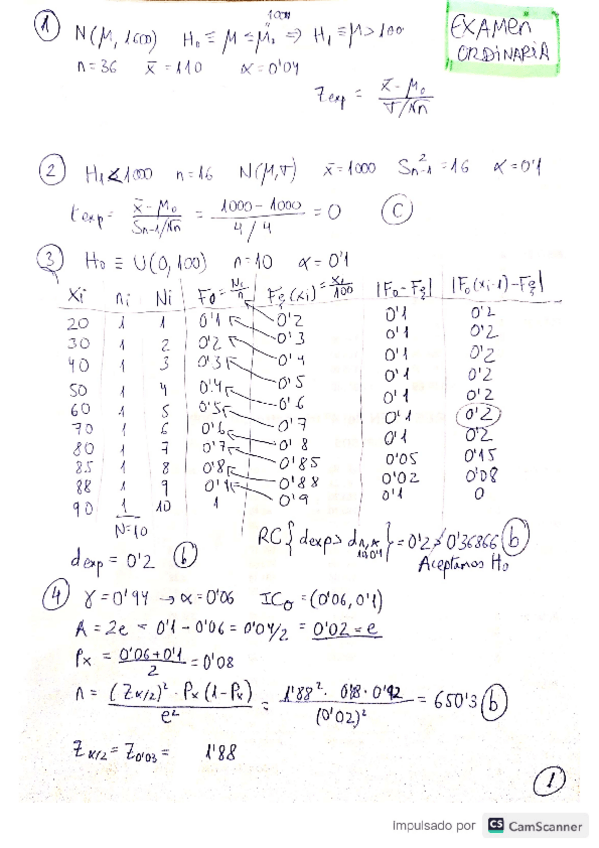 EXAMEN
ORDINARIA
① N(μ, 1600) H₀ ≡ μ ≤ μ₀ ⇒ H₁ ≡ μ > 100
n = 36 x̄ = 110 α = 0'04
Z exp = x̄ - μ₀ / σ/√n
② H₁ < 1000 n = 16 N(μ, σ) x̄ = 1000 S²n-1 = 16 α = 0'1
t exp = x̄ - μ₀ / Sn-1/√n = 1000 - 1000 / 4/4 = 0 Ⓒ
③ H₀ ≡ U(0, 100) n = 10 α = 0'1
Xi ni Ni F₀ = Ni/n Fξ(xi) = Xi/100 |F₀ - Fξ| |F₀(xi-1) - Fξ|
20 1 1 0'1 0'2 0'1 0'2
30 1 2 0'2 0'3 0'1 0'2
40 1 3 0'3 0'4 0'1 0'2
50 1 4 0'4 0'5 0'1 0'2
60 1 5 0'5 0'6 0'1 0'2
70 1 6 0'6 0'7 0'1 0'2
80 1 7 0'7 0'8 0'1 0'2
85 1 8 0'8 0'85 0'05 0'15
88 1 9 0'9 0'88 0'02 0'08
90 1 10 1 0'9 0'1 0
N = 10
RC { dexp > dn,α } = 0'2 ≯ 0'36866 ⓑ
dexp = 0'2 ⓑ
Aceptamos H₀
④ γ = 0'94 → α = 0'06 IC = (0'06, 0'1)
A = 2e = 0'1 - 0'06 = 0'04/2 = 0'02 = e
Px = 0'06 + 0'1 / 2 = 0'08
n = (Zα/2)² · Px (1 - Px) / e² = 1'88² · 0'08 · 0'92 / (0'02)² = 650'3 ⓑ
Zα/2 = Z0'03 = 1'88
①
Impulsado por CS CamScanner